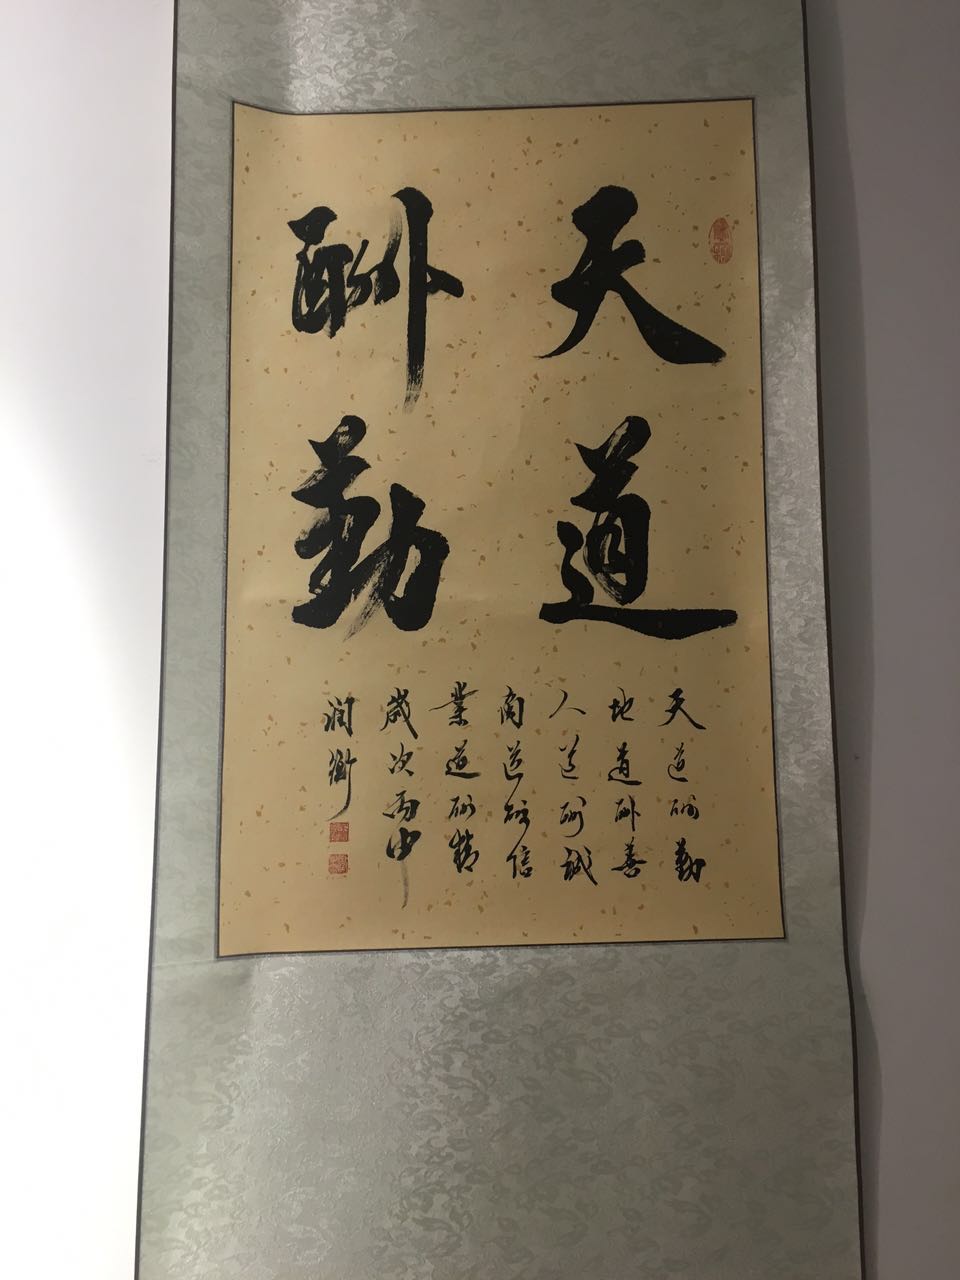 天道
酬勤
天道酬勤
地道酬善
人道酬诚
商道酬信
業道酬精
歲次丙申
润衡